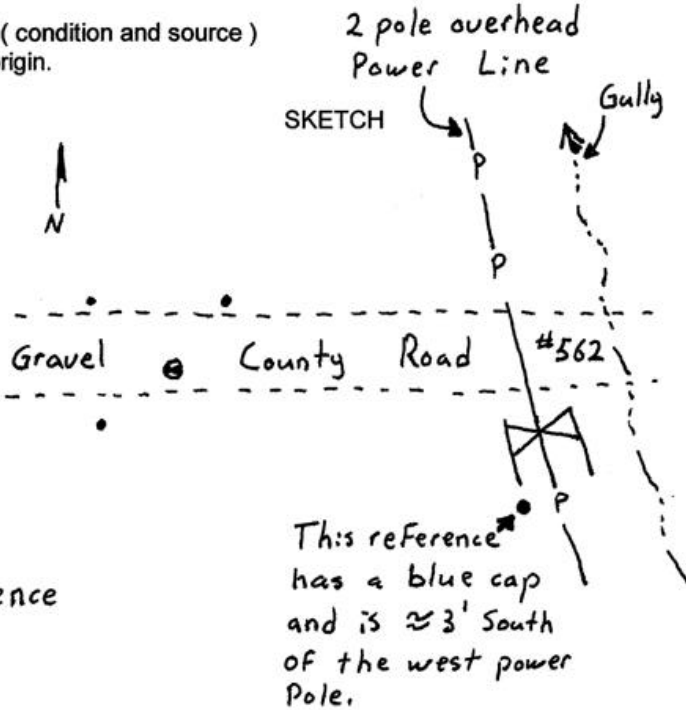 ( condition and source )
rigin.
2 pole overhead
Power Line
SKETCH
Gully
N
P
P
Gravel County Road #562
P
This reference
has a blue cap
and is ≈ 3' South
of the west power
Pole.
ence